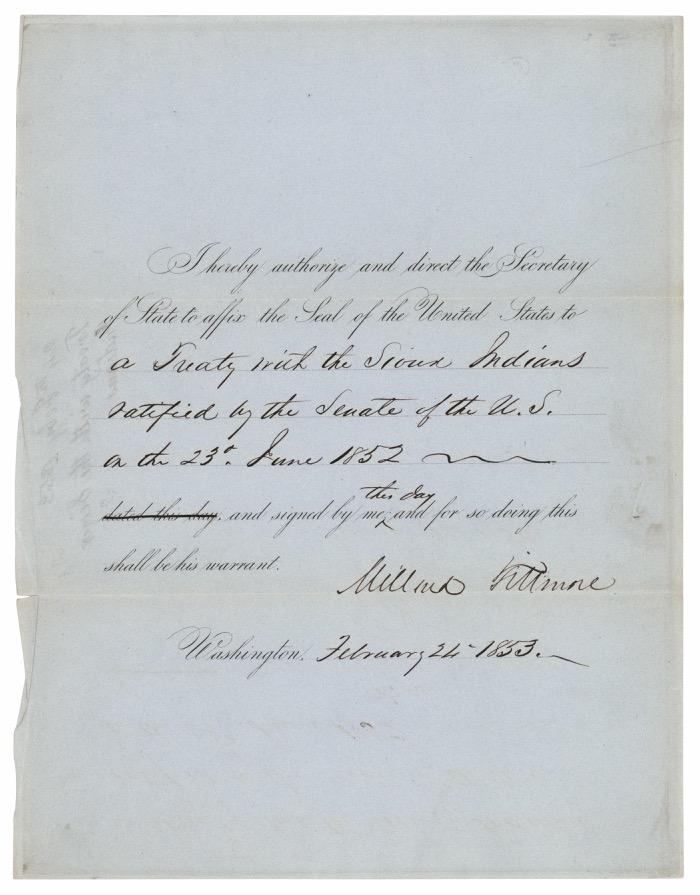 I hereby authorize and direct the Secretary
of State to affix the Seal of the United States to
a Treaty with the Sioux Indians
ratified by the Senate of the U. S.
on the 23d. June 1852
this day
dated this day, and signed by me; and for so doing this
shall be his warrant.
Millard Fillmore
Washington, February 24 1853.